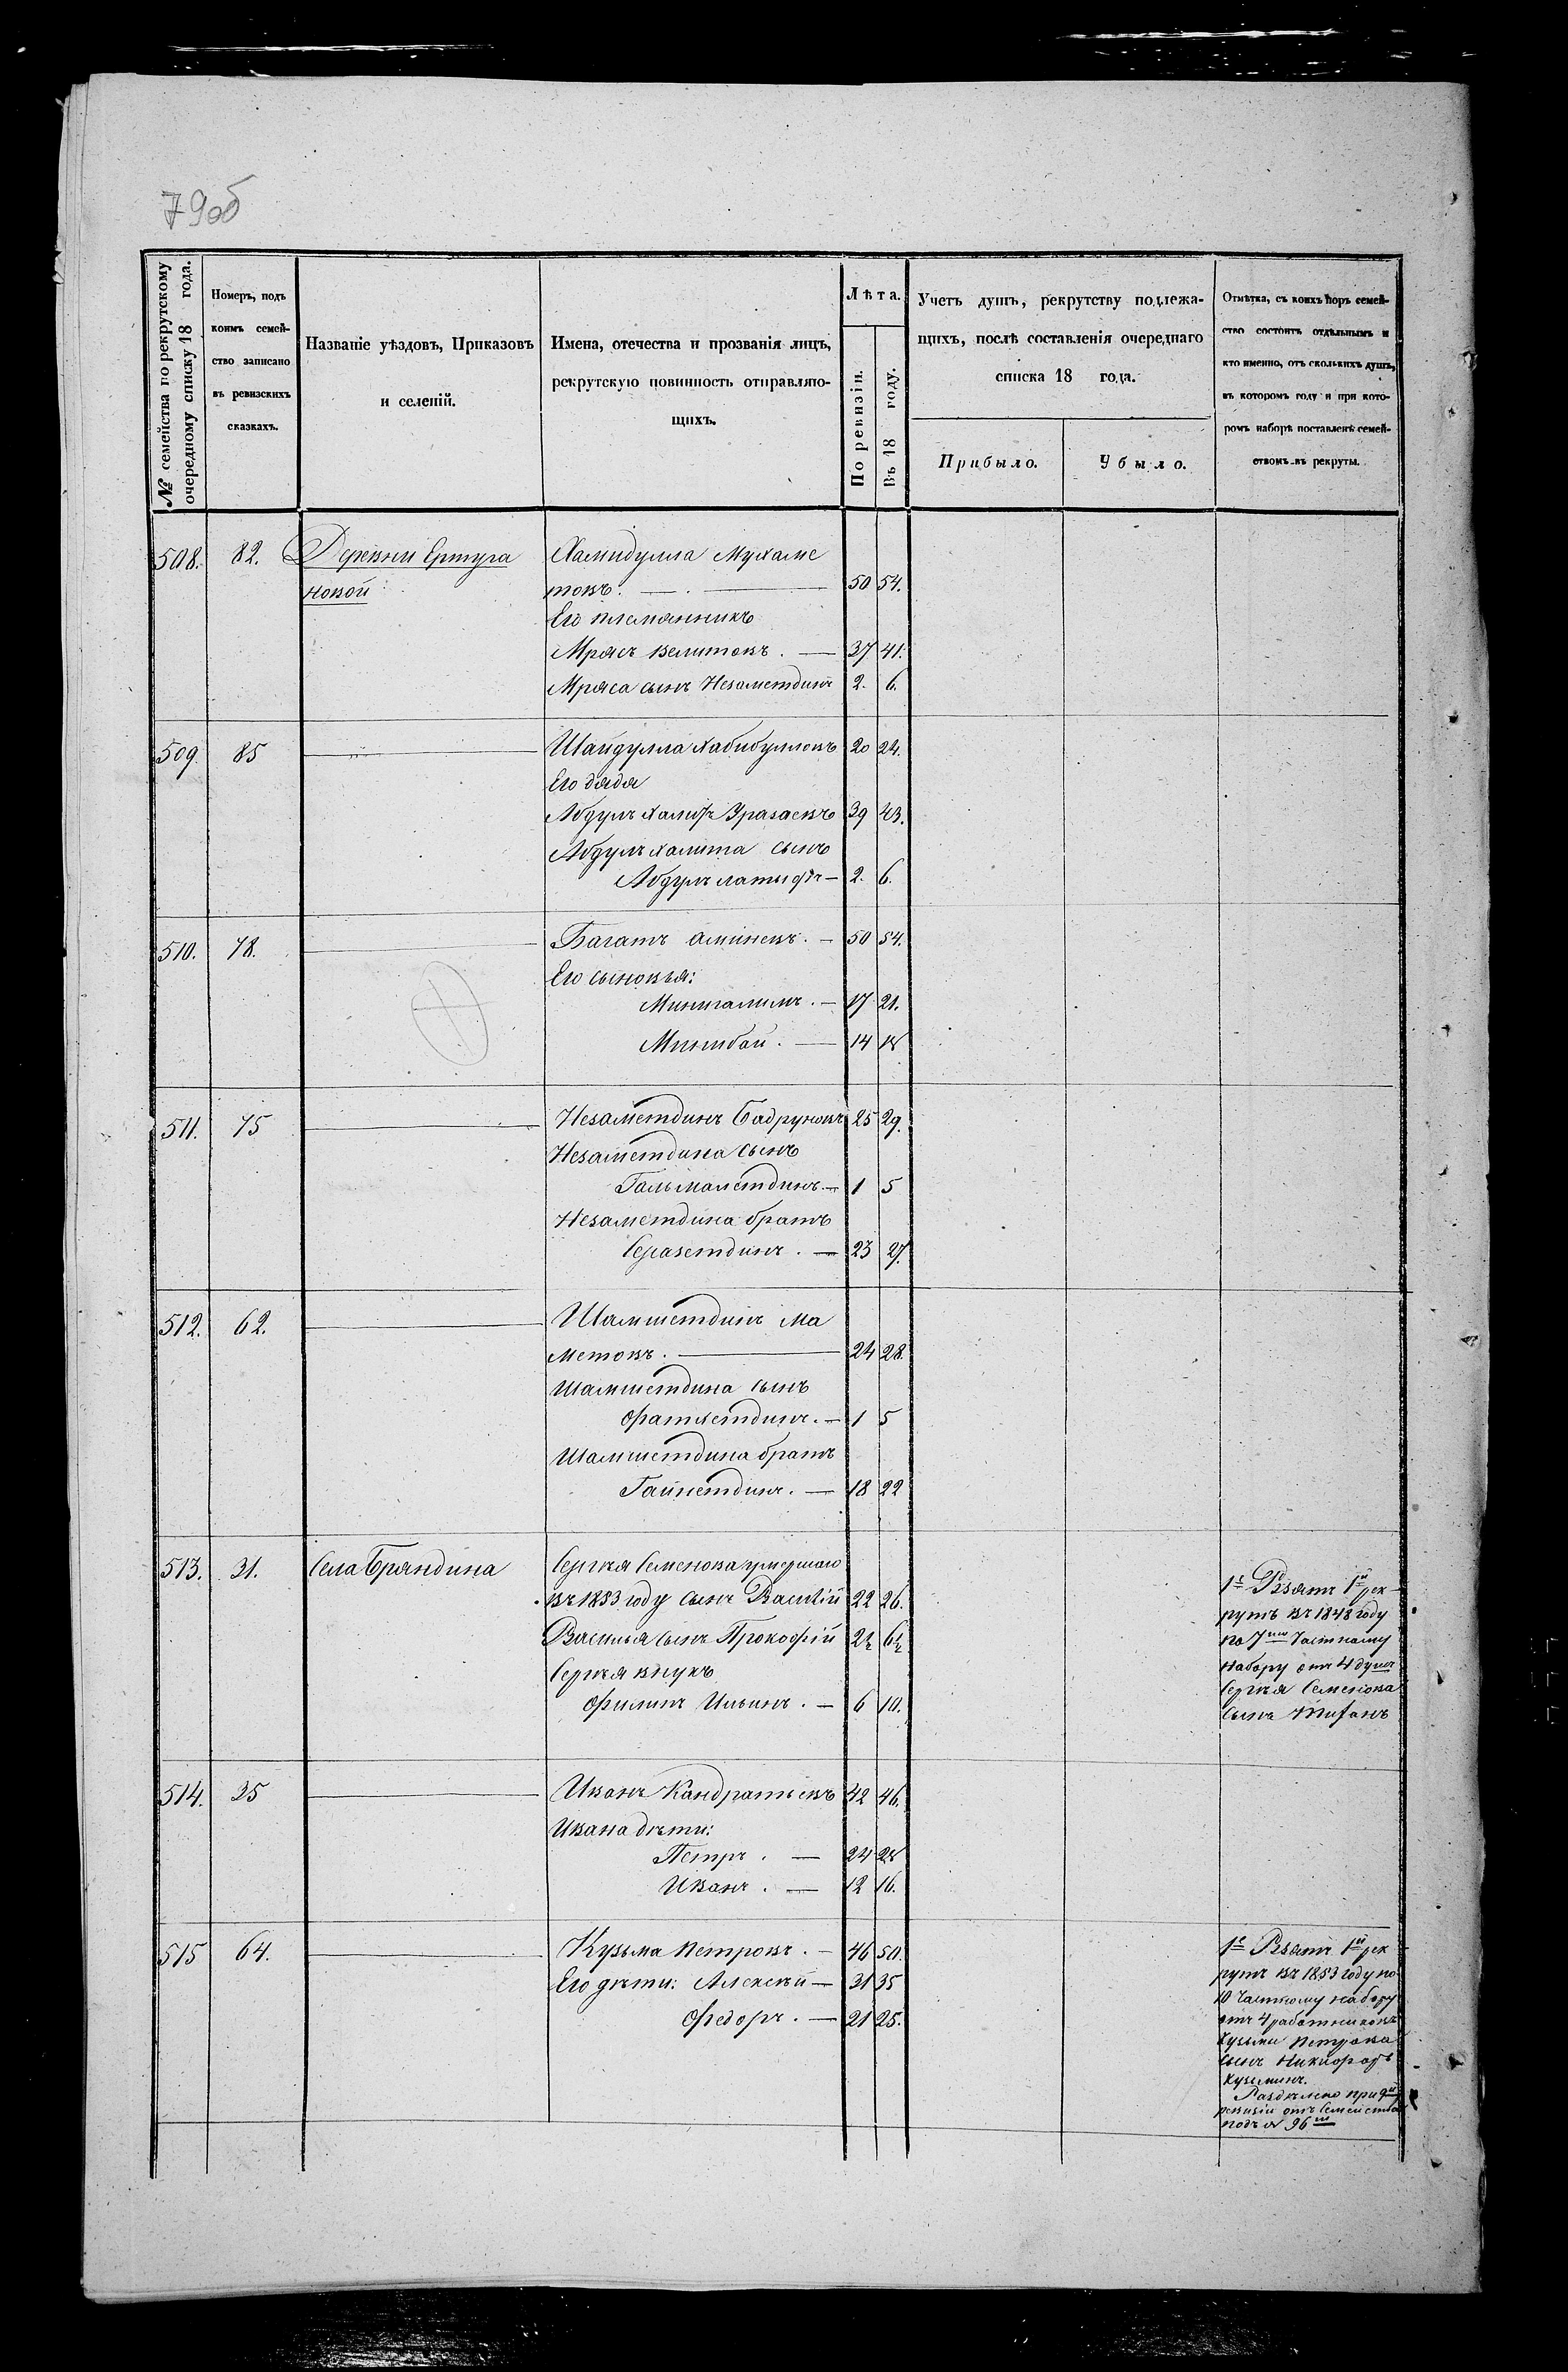 79об
№ семейства по рекрутскому
очередному списку 18 года.
Номеръ, подъ
коимъ семей-
ство записано
въ ревизскихъ
сказкахъ.
Названіе уѣздовъ, Приказовъ
и селеній.
Имена, отечества и прозванія лицъ,
рекрутскую повинность отправляю-
щихъ.
Лѣта.
По ревизіи.
Въ 18 году.
Учетъ душъ, рекрутству подлежа-
щихъ, послѣ составленія очереднаго
списка 18 года.
Прибыло.
Убыло.
Отмѣтка, съ коихъ поръ семей-
ство состоитъ отдѣльнымъ и
кто именно, отъ сколькихъ душъ,
въ которомъ году и при кото-
ромъ наборѣ поставленъ семей-
ствомъ въ рекруты.
508. 82. Деревни Ертуга Хамидулла Мухаме
новой товъ. — 50 54.
Его племянникъ
Мрясъ Велитовъ. — 37 41.
Мряса сынъ Незаметдинъ 2. 6.
509. 85 — Шайдулла Хабибулловъ 20 24.
Его дядя
Абдулъ Халитъ Уразаевъ 39 43.
Абдулъ Халита сынъ
Абдулъ латыфъ — 2. 6.
510. 78. — Багатъ Аминевъ. — 50 54.
Его сыновья:
Минигалимъ. — 17 21.
Минибай. — 14 18
511. 75 — Незаметдинъ Бадруновъ 25 29.
Незаметдина сынъ
Гальмалетдинъ. — 1 5
Незаметдина братъ
Серазетдинъ. — 23 27.
512. 62. — Шамшетдинъ Ма
метовъ. — 24 28.
Шамшетдина сынъ
Фатхетдинъ. — 1 5
Шамшетдина братъ
Гайнетдинъ. — 18 22
513. 31. Села Бряндина Сергѣя Семенова умершаго
въ 1853 году сынъ Василій 22 26.
Василья сынъ Прокофій 2½ 6½
Сергѣя внукъ
Филипъ Ильинъ. — 6 10.
1е Взятъ 1й рек-
рутъ въ 1848 году
по 7му Частному
набору отъ 4 душъ
Сергѣя Семенова
сынъ
514. 25 — Иванъ Кандратьевъ 42 46.
Ивана дѣти:
Петръ. — 24 28
Иванъ. — 12 16.
515 64. — Кузьма Петровъ. — 46 50.
Его дѣти: Алексѣй — 31 35
Федоръ. — 21 25.
1е Взятъ 1й рек
рутъ въ 1853 году по
10 Частному набору
отъ 4 работниковъ
Кузьмы Петрова
сынъ Никифоръ
Кузьминъ.
Раздѣлено при 9й
ревизіи отъ Семейства
подъ № 96м